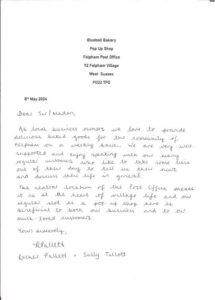 Bluebell Bakery
Pop Up Shop
Felpham Post Office
92 Felpham Village
West Sussex
PO22 7PD
8th May 2024
Dear Sir/Madam,
As local business owners we love to provide
delicious baked goods for the community of
Felpham on a weekly basis. We are very well
supported and enjoy speaking with our many
regular customers who like to take some time
out of their day to tell us their news
and discuss their life in general.
The central location of the Post Office means
it is at the heart of village life and our
regular slot as a pop up shop here is
beneficial to both our business and to our
much loved customers.
Yours sincerely,
Rachel + Sally